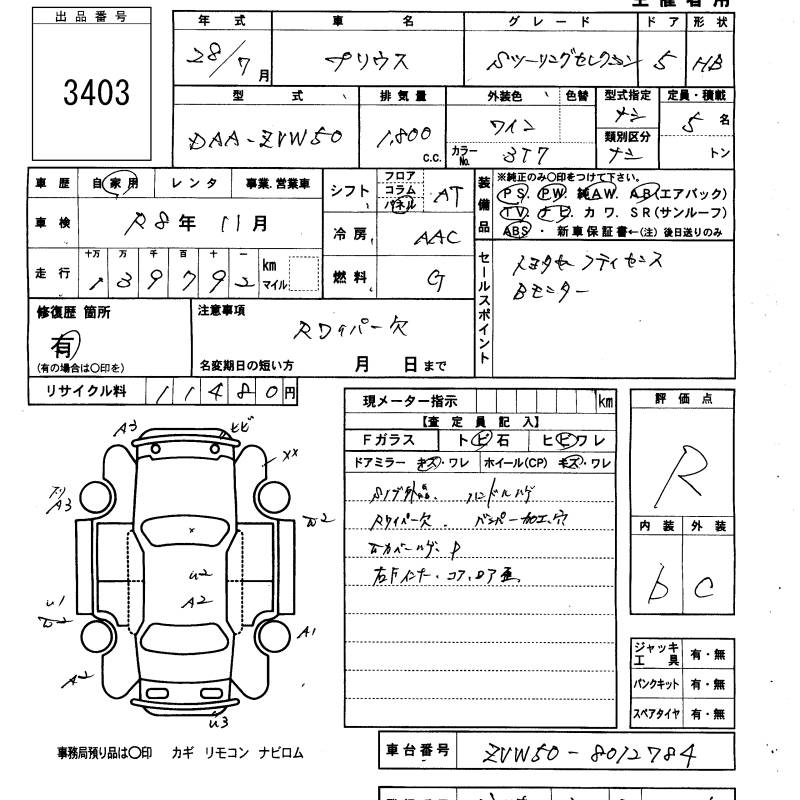 出品番号
3403
年式
28/7月
車名
プリウス
グレード
Sツーリングセレクション
ドア
5
形状
HB
型式
DAA-ZVW50
排気量
1,800 c.c.
外装色
ワイン
色替
カラーNo.
3T7
型式指定
ナシ
類別区分
ナシ
定員・積載
5名
トン
車歴
自家用
レンタ
事業.営業車
シフト
フロア
コラム
パネル
AT
車検
R8年 11月
冷房
AAC
走行
十万 万 千 百 十 一
139792
km
マイル
燃料
G
装備品
※純正のみ○印をつけて下さい。
PS. PW. 純AW. AB(エアバック)
TV. ナビ カワ. SR(サンルーフ)
ABS ・ 新車保証書←(注) 後日送りのみ
セールスポイント
トヨタセーフティセンス
Bモニター
修復歴箇所
有
(有の場合は○印を)
注意事項
Rワイパー欠
名変期日の短い方 月 日まで
リサイクル料
11480円
現メーター指示 km
【査定員記入】
Fガラス トビ石 ヒビワレ
ドアミラー キズ・ワレ ホイール(CP) キズ・ワレ
ハンドルハゲ
Rワイパー欠. バンパー加工、穴
評価点
R
内装 外装
b C
A3
ヒビ
××
A3
U2
A2
U1
A1
A2
U3
ジャッキ工具 有・無
パンクキット 有・無
スペアタイヤ 有・無
事務局預り品は○印 カギ リモコン ナビロム
車台番号
ZVW50-8012784